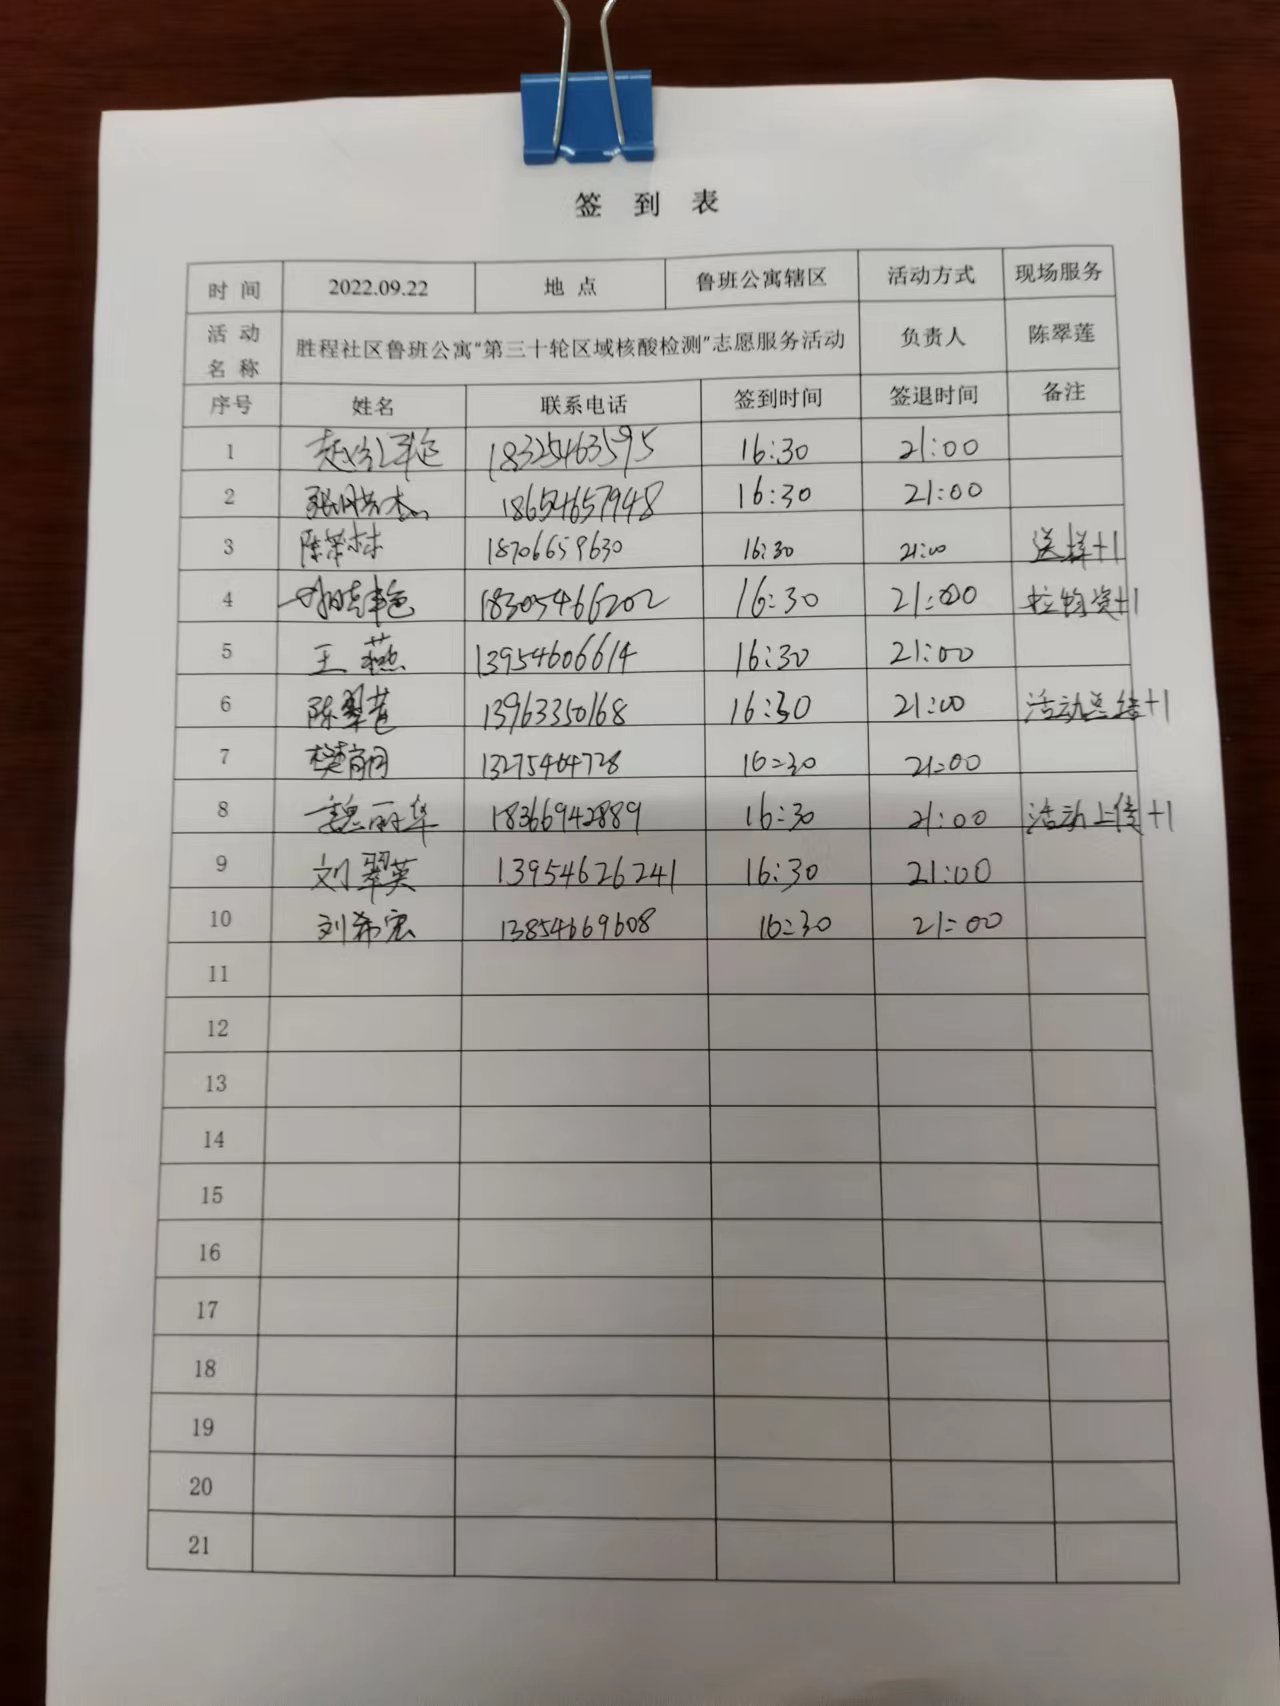 签 到 表
时 间 2022.09.22 地 点 鲁班公寓辖区 活动方式 现场服务
活 动 名 称 胜程社区鲁班公寓“第三十轮区域核酸检测”志愿服务活动 负责人 陈翠莲
序号 姓名 联系电话 签到时间 签退时间 备注
1 18325463595 16:30 21:00
2 18654657948 16:30 21:00
3 陈荣林 18706659630 16:30 21:00 送样+1
4 18305466202 16:30 21:00 拉物资+1
5 王燕 13954606614 16:30 21:00
6 陈翠莲 13963350168 16:30 21:00 活动总结+1
7 13275464728 16:30 21:00
8 魏丽华 18366942889 16:30 21:00 活动上传+1
9 刘翠英 13954626241 16:30 21:00
10 刘希宏 13854669608 16:30 21:00
11
12
13
14
15
16
17
18
19
20
21